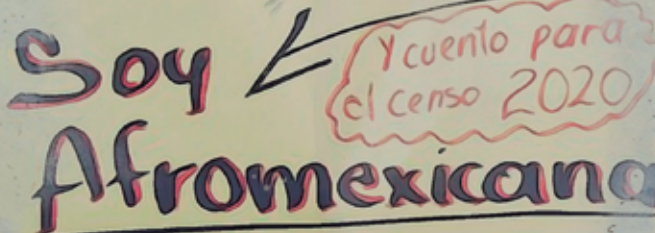 Soy
Y cuento para
el censo 2020
Afromexicana